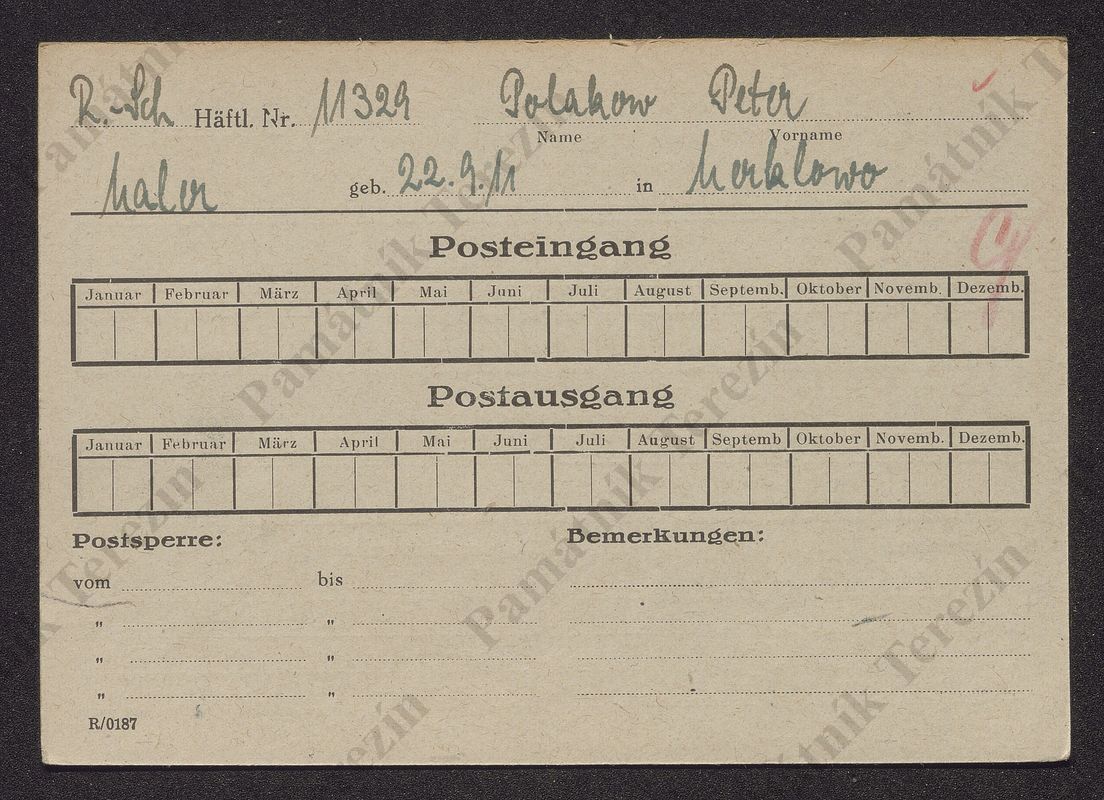 R.-Sch Häftl. Nr. 11329 Polakow Peter
Name Vorname
Maler geb. 22.9.11 in Merklowo
Posteingang
Januar Februar März April Mai Juni Juli August Septemb. Oktober Novemb. Dezemb.
Postausgang
Januar Februar März April Mai Juni Juli August Septemb Oktober Novemb. Dezemb.
Postsperre: Bemerkungen:
vom bis
" "
" "
" "
R/0187
Památník Terezín